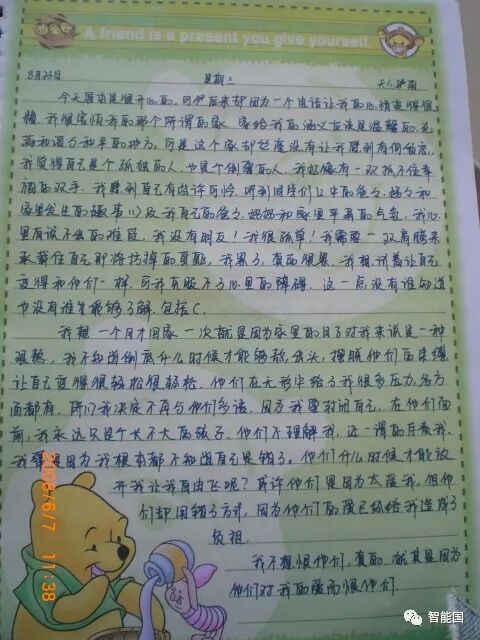 A friend is a present you give yourself.
8月23日 星期2 天气:阴雨
今天原本是很开心的,可他后来却因为一个电话让我的心情变得很
糟,我很害怕我的那个所谓的家,家给我的涵义应该是温馨的,充
满和谐与和平的地方,可是这个家却丝毫没有让我感到有何留恋,
我觉得自己是个孤独的人,也是个倒霉的人,我好像有一双抓不住幸
福的双手,我感到自己有些许可怜,听到同学们口中的爸爸,妈妈和
家里发生的趣事
我自己的爸爸,妈妈和家里平离的气氛,我心
里有说不出的难受,我没有朋友!我很孤单!我需要一双肩膀来
承载住自己即将坊掉的身躯,我累了,真的很累,我想试着让自己
变得和他们一样,可我克服不了心里的障碍,这一点没有谁知道
也没有谁能够了解,包括C.
我想一个月才回家一次就是因为家里的日子对我来说是一种
艰熬,我不知道倒底什么时候才能够熬出头,摆脱他们的束缚
让自己变得很轻松很轻松,他们在无形中给了我很多压力,各方
面都有,所以我决定不再与他们多语,因为我要封闭自己,在他们面
前,我永远只是个长不大的孩子,他们不理解我,还一谓的斥责我,
我犟是因为我根本都不知道自己是错了。他们什么时候才能放
开我让我自由飞呢?或许他们是因为太爱我,但他
们却用错了方式,因为他们的爱已经给我造成了
负担.
我不想恨他们,真的,尤其是因为
他们对我的爱而恨他们.
2008/6/7 11:38
智能国